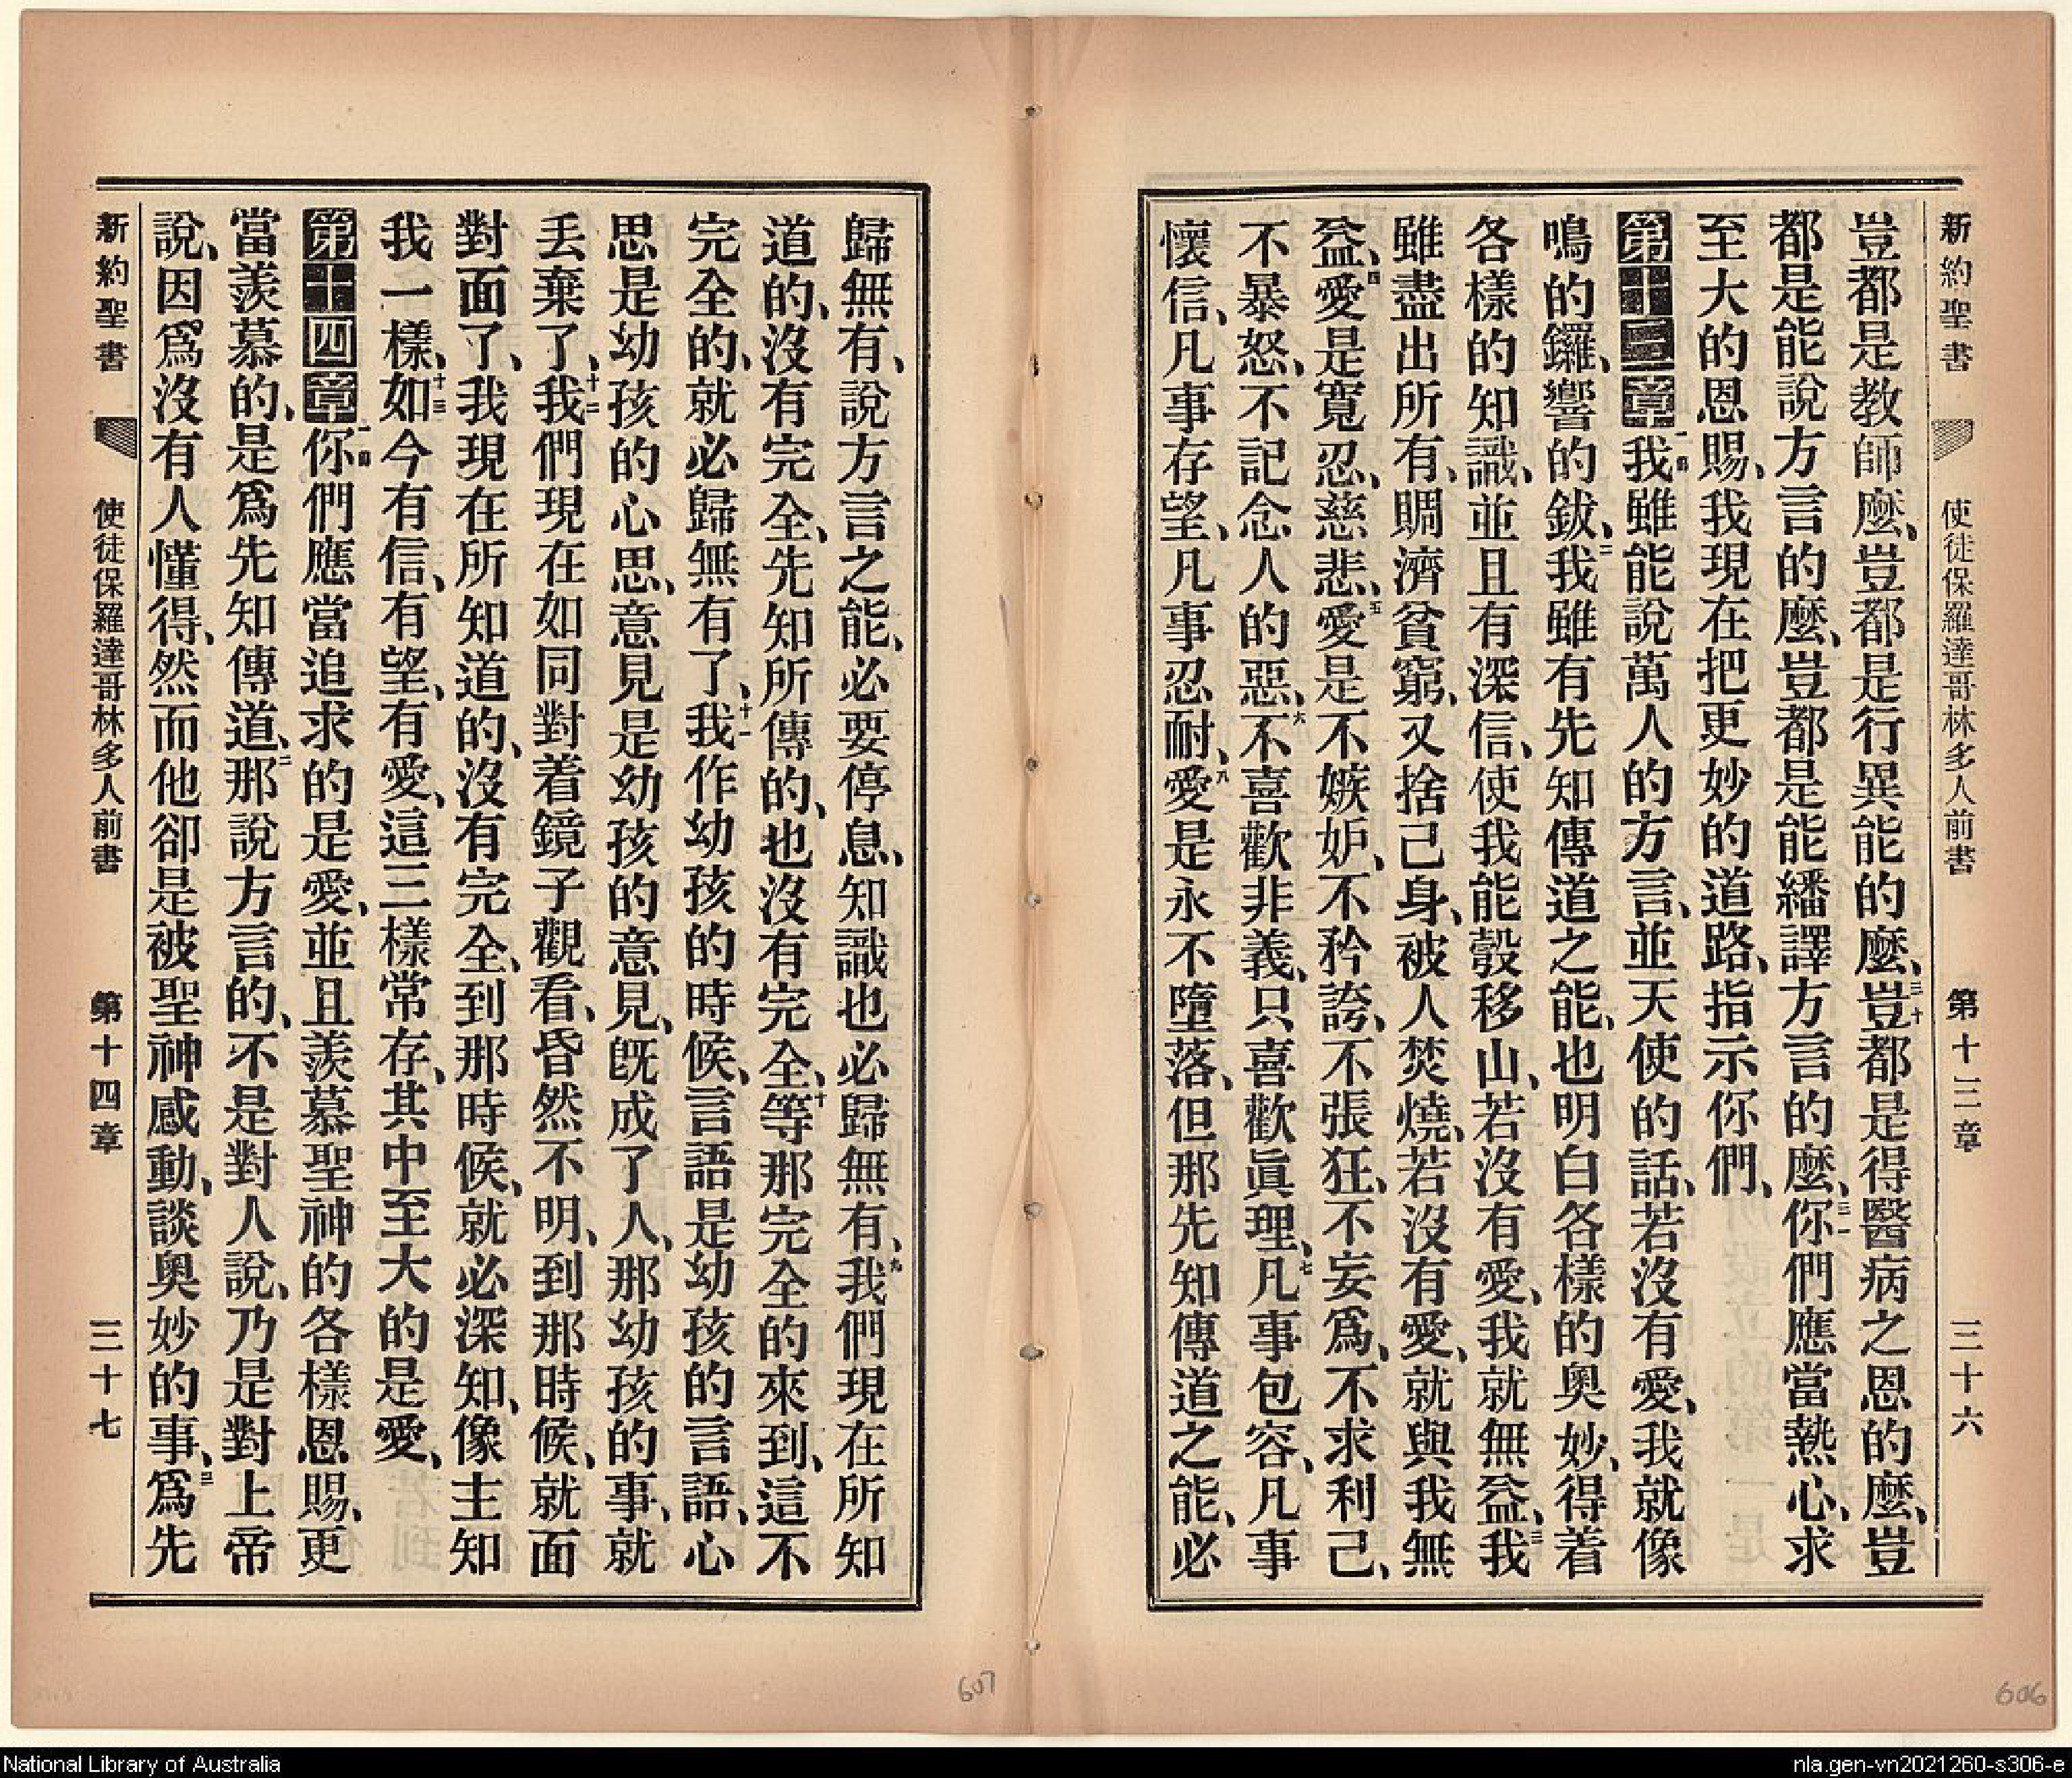 新約聖書 使徒保羅達哥林多人前書 第十三章 三十六
豈都是教師麼、豈都是行異能的麼、三十豈都是得醫病之恩的麼、豈
都是能說方言的麼、豈都是能繙譯方言的麼、三一你們應當熱心、求
至大的恩賜、我現在把更妙的道路、指示你們、
第十三章一節我雖能說萬人的方言、並天使的話、若沒有愛、我就像
鳴的鑼、響的鈸、二我雖有先知傳道之能、也明白各樣的奧妙、得着
各樣的知識、並且有深信、使我能彀移山、若沒有愛、我就無益、三我
雖盡出所有、賙濟貧窮、又捨己身、被人焚燒、若沒有愛、就與我無
益、四愛是寬忍、慈悲、五愛是不嫉妒、不矜誇、不張狂、不妄爲、不求利己、
不暴怒、不記念人的惡、六不喜歡非義、只喜歡眞理、七凡事包容、凡事
懷信、凡事存望、凡事忍耐、八愛是永不墮落、但那先知傳道之能、必
歸無有、說方言之能、必要停息、知識也必歸無有、九我們現在所知
道的、沒有完全、先知所傳的、也沒有完全、十等那完全的來到、這不
完全的、就必歸無有了、十一我作幼孩的時候、言語是幼孩的言語、心
思是幼孩的心思、意見是幼孩的意見、旣成了人、那幼孩的事、就
丟棄了、十二我們現在如同對着鏡子觀看、昏然不明、到那時候、就面
對面了、我現在所知道的、沒有完全、到那時候、就必深知、像主知
我一樣、十三如今有信、有望、有愛、這三樣常存、其中至大的是愛、
第十四章一節你們應當追求的是愛、並且羨慕聖神的各樣恩賜、更
當羨慕的、是爲先知傳道、二那說方言的、不是對人說、乃是對上帝
說、因爲沒有人懂得、然而他卻是被聖神感動、談奧妙的事、三爲先
新約聖書 使徒保羅達哥林多人前書 第十四章 三十七
607
606
National Library of Australia
nla.gen-vn2021260-s306-e